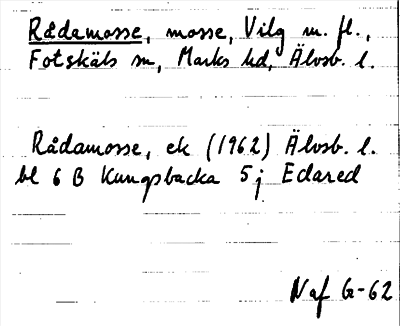 Rådamosse, mosse, Vilg m. fl.,
Fotskäls sn, Marks hd, Älvsb. l.
Rådamosse, ek (1962) Älvsb. l.
bl 6 B Kungsbacka 5 j Edared
Naf G-62